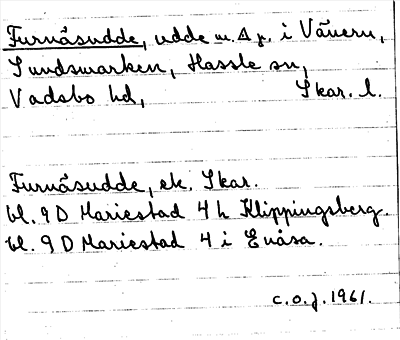 Furnäsudde, udde m. ∆ p. i Vänern,
Sundsmarken, Hassle sn,
Vadsbo hd, Skar. l.
Furunäsudde, ek. Skar.
bl. 9 D Mariestad 4 h Klippingsberg.
bl. 9 D Mariestad 4 i Enåsa.
c.o.j. 1961.